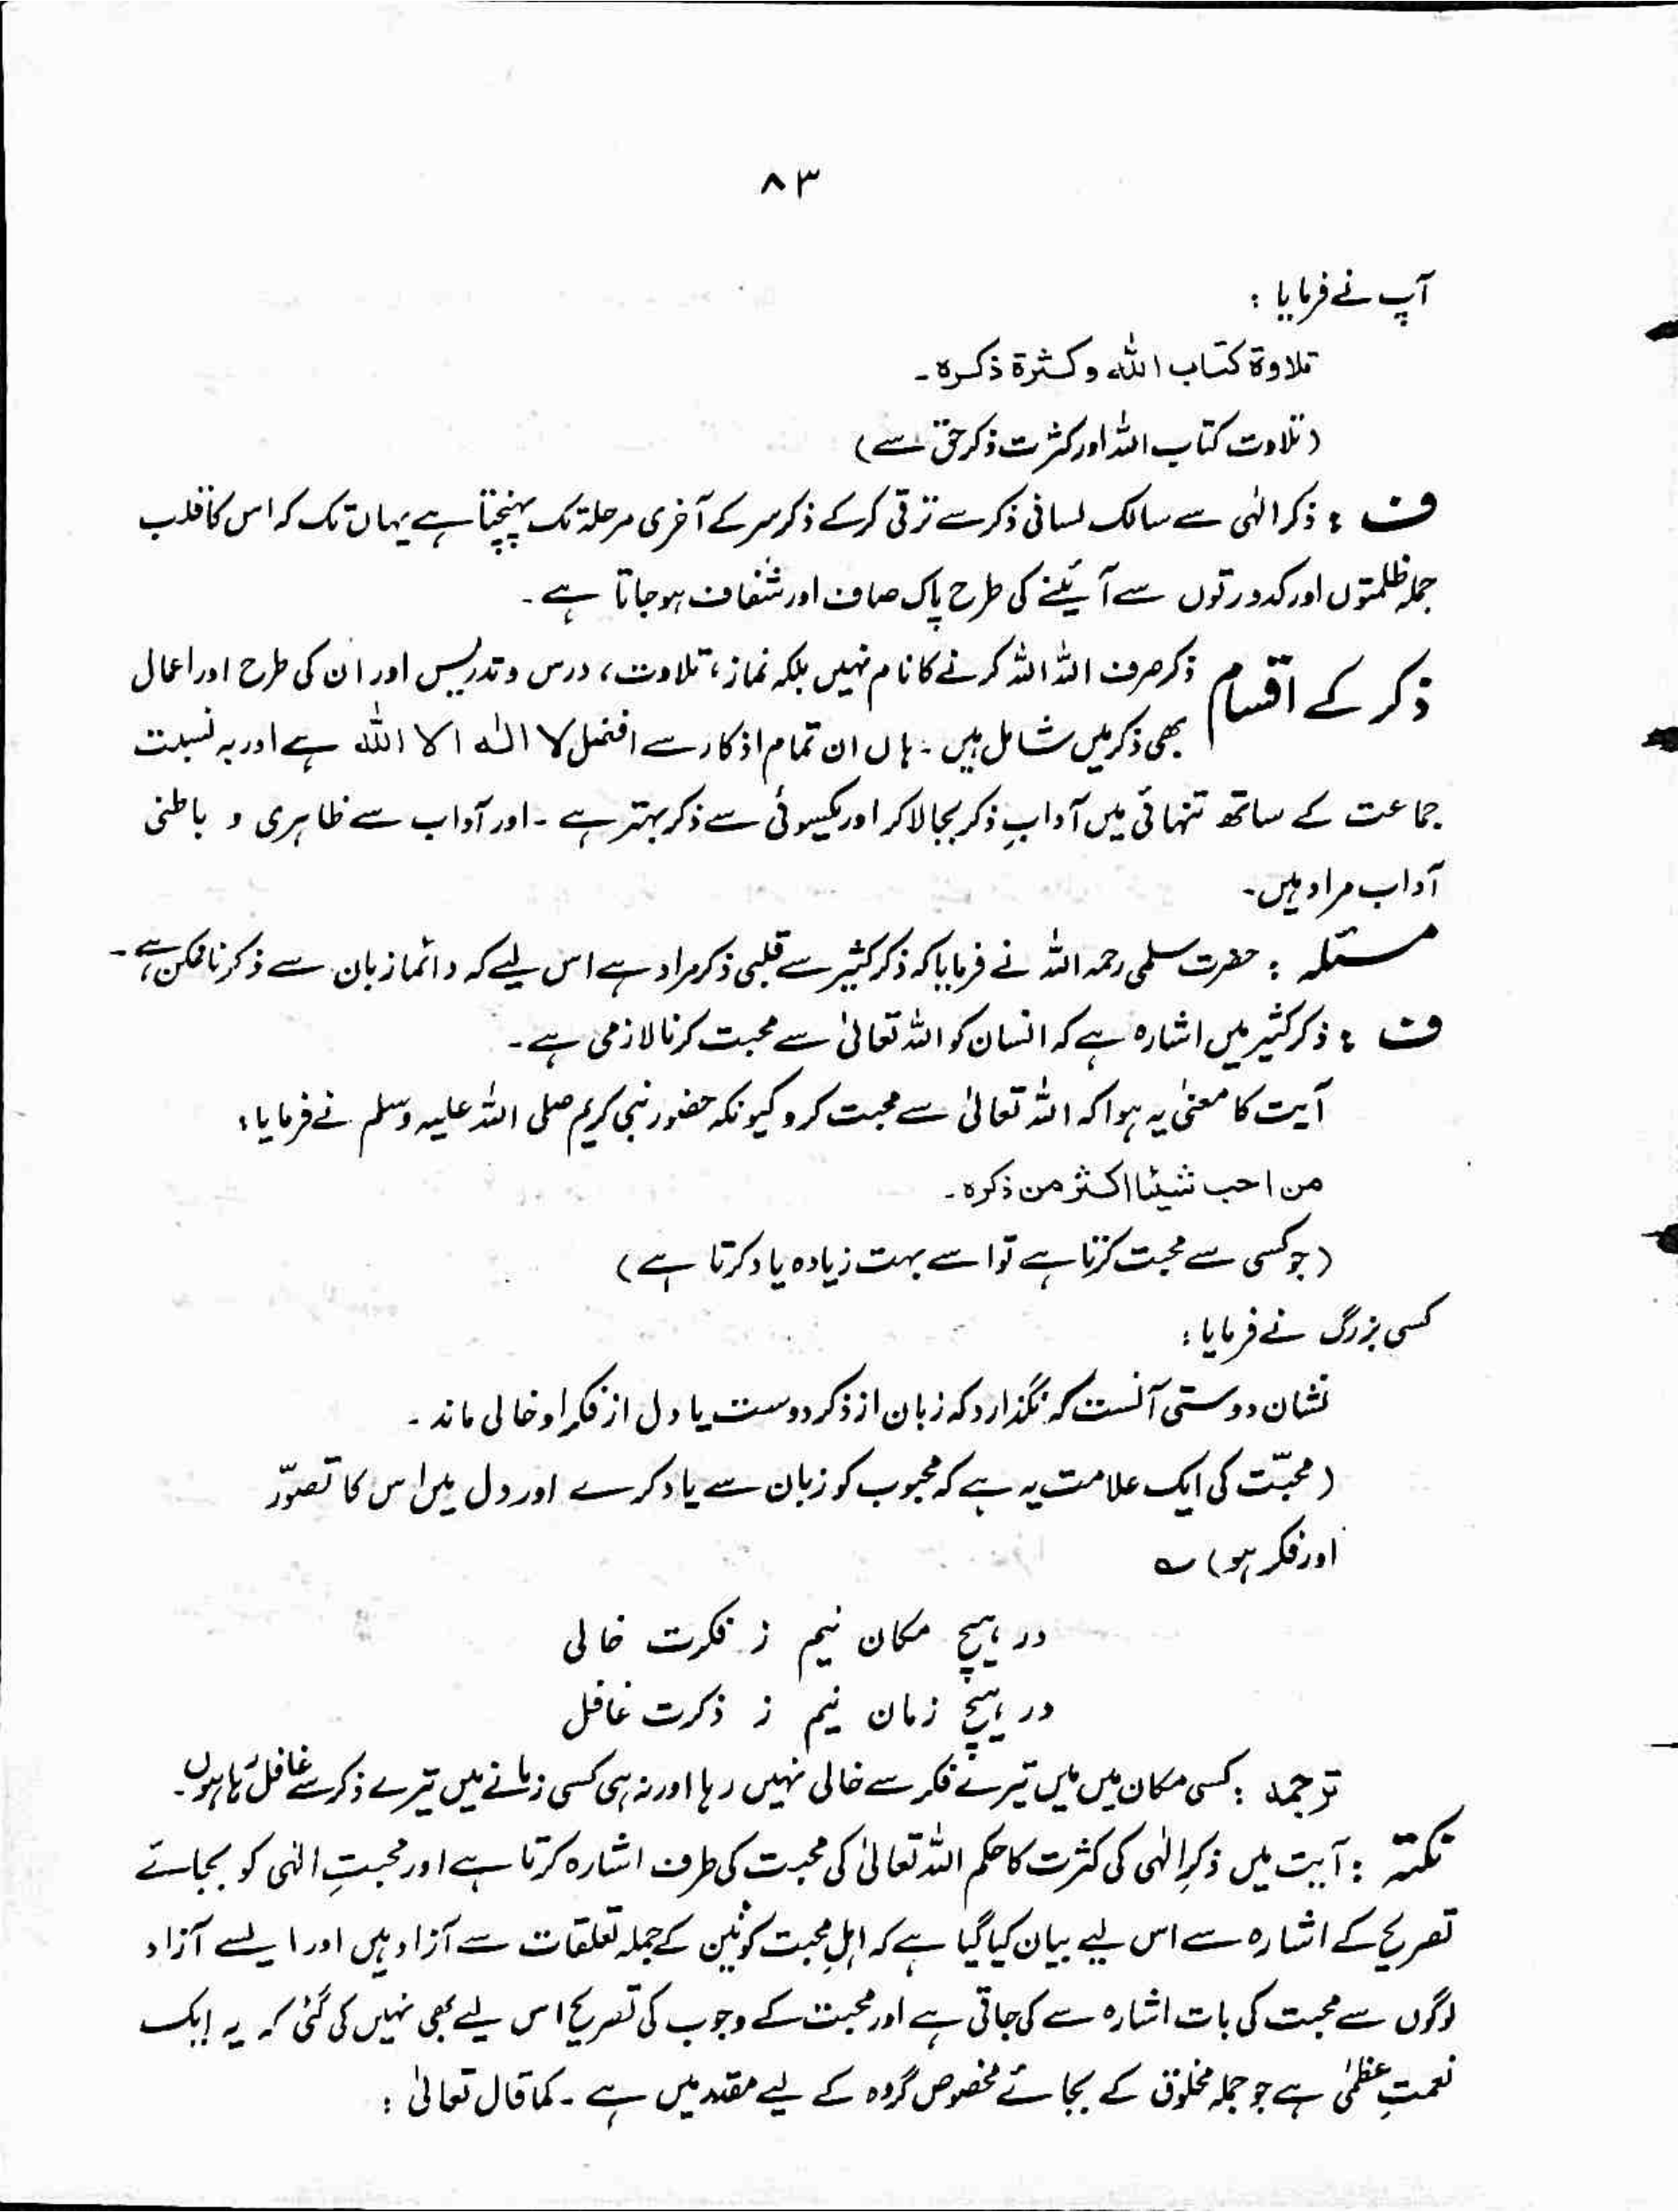 ۸۳
آپ نے فرمایا :
تلاوة كتاب الله وكثرة ذكره۔
(تلاوت کتاب اللہ اور کثرت ذکر حق سے)
ف : ذکر الٰہی سے سالک لسانی ذکر سے ترقی کرکے ذکر سر کے آخری مرحلہ تک پہنچتا ہے یہاں تک کہ اس کا قلب
جملہ ظلمتوں اور کدورتوں سے آئینے کی طرح پاک صاف اور شفاف ہو جاتا ہے۔
ذکر کے اقسام ذکر صرف اللہ اللہ کرنے کا نام نہیں بلکہ نماز، تلاوت، درس و تدریس اور ان کی طرح اور اعمال
بھی ذکر میں شامل ہیں۔ ہاں ان تمام اذکار سے افضل لا الٰہ الا اللہ ہے اور بہ نسبت
جماعت کے ساتھ تنہائی میں آدابِ ذکر بجا لا کر اور یکسوئی سے ذکر بہتر ہے۔ اور آداب سے ظاہری و باطنی
آداب مراد ہیں۔
مسئلہ : حضرت سلمی رحمہ اللہ نے فرمایا کہ ذکر کثیر سے قلبی ذکر مراد ہے اس لیے کہ دائما زبان سے ذکر ناممکن ہے۔
ف : ذکر کثیر میں اشارہ ہے کہ انسان کو اللہ تعالیٰ سے محبت کرنا لازمی ہے۔
آیت کا معنٰی یہ ہوا کہ اللہ تعالیٰ سے محبت کرو کیونکہ حضور نبی کریم صلی اللہ علیہ وسلم نے فرمایا:
من احب شيئا اكثر من ذكره۔
(جو کسی سے محبت کرتا ہے تو اسے بہت زیادہ یاد کرتا ہے)
کسی بزرگ نے فرمایا:
نشان دوستی آنست کہ نگذارد کہ زبان از ذکر دوست یا دل از فکر او خالی ماند۔
(محبّت کی ایک علامت یہ ہے کہ محبوب کو زبان سے یاد کرے اور دل میں اس کا تصوّر
اور فکر ہو) ؎
در ہیچ مکان نیم ز فکرت خالی
در ہیچ زمان نیم ز ذکرت غافل
ترجمہ : کسی مکان میں میں تیرے فکر سے خالی نہیں رہا اور نہ ہی کسی زمانے میں تیرے ذکر سے غافل رہا ہوں۔
نکتہ : آیت میں ذکرِ الٰہی کی کثرت کا حکم اللہ تعالیٰ کی محبت کی طرف اشارہ کرتا ہے اور محبتِ الٰہی کو بجائے
تصریح کے اشارہ سے اس لیے بیان کیا گیا ہے کہ اہلِ محبت کونین کے جملہ تعلقات سے آزاد ہیں اور ایسے آزاد
لوگوں سے محبت کی بات اشارہ سے کی جاتی ہے اور محبت کے وجوب کی تصریح اس لیے بھی نہیں کی گئی کہ یہ ایک
نعمتِ عظمٰی ہے جو جملہ مخلوق کے بجائے مخصوص گروہ کے لیے مقدر میں ہے۔ کما قال تعالیٰ :